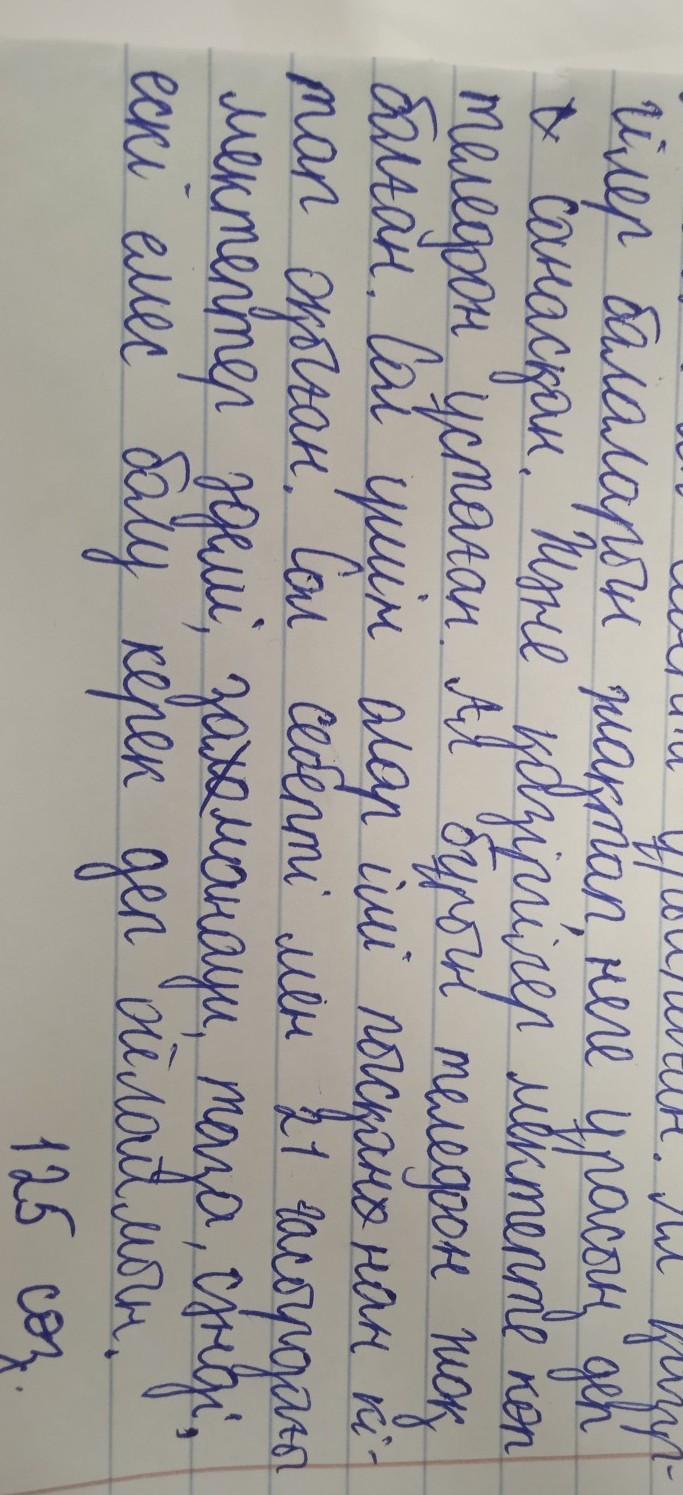 Ал қазір-
гілер балаларын жақтап, неге ұрасың деп
санасқан. Және қазіргілер мектепте көп
телефон ұстаған. Ал бұрын телефон жоқ
болған. Сол үшін олар іші пысқаннан кі-
тап оқыған. Сол себепті мен 21 ғасырдағы
мектептер әдемі, заманауи, таза, сәнді,
ескі емес болу керек деп ойлаймын.
125 сөз.